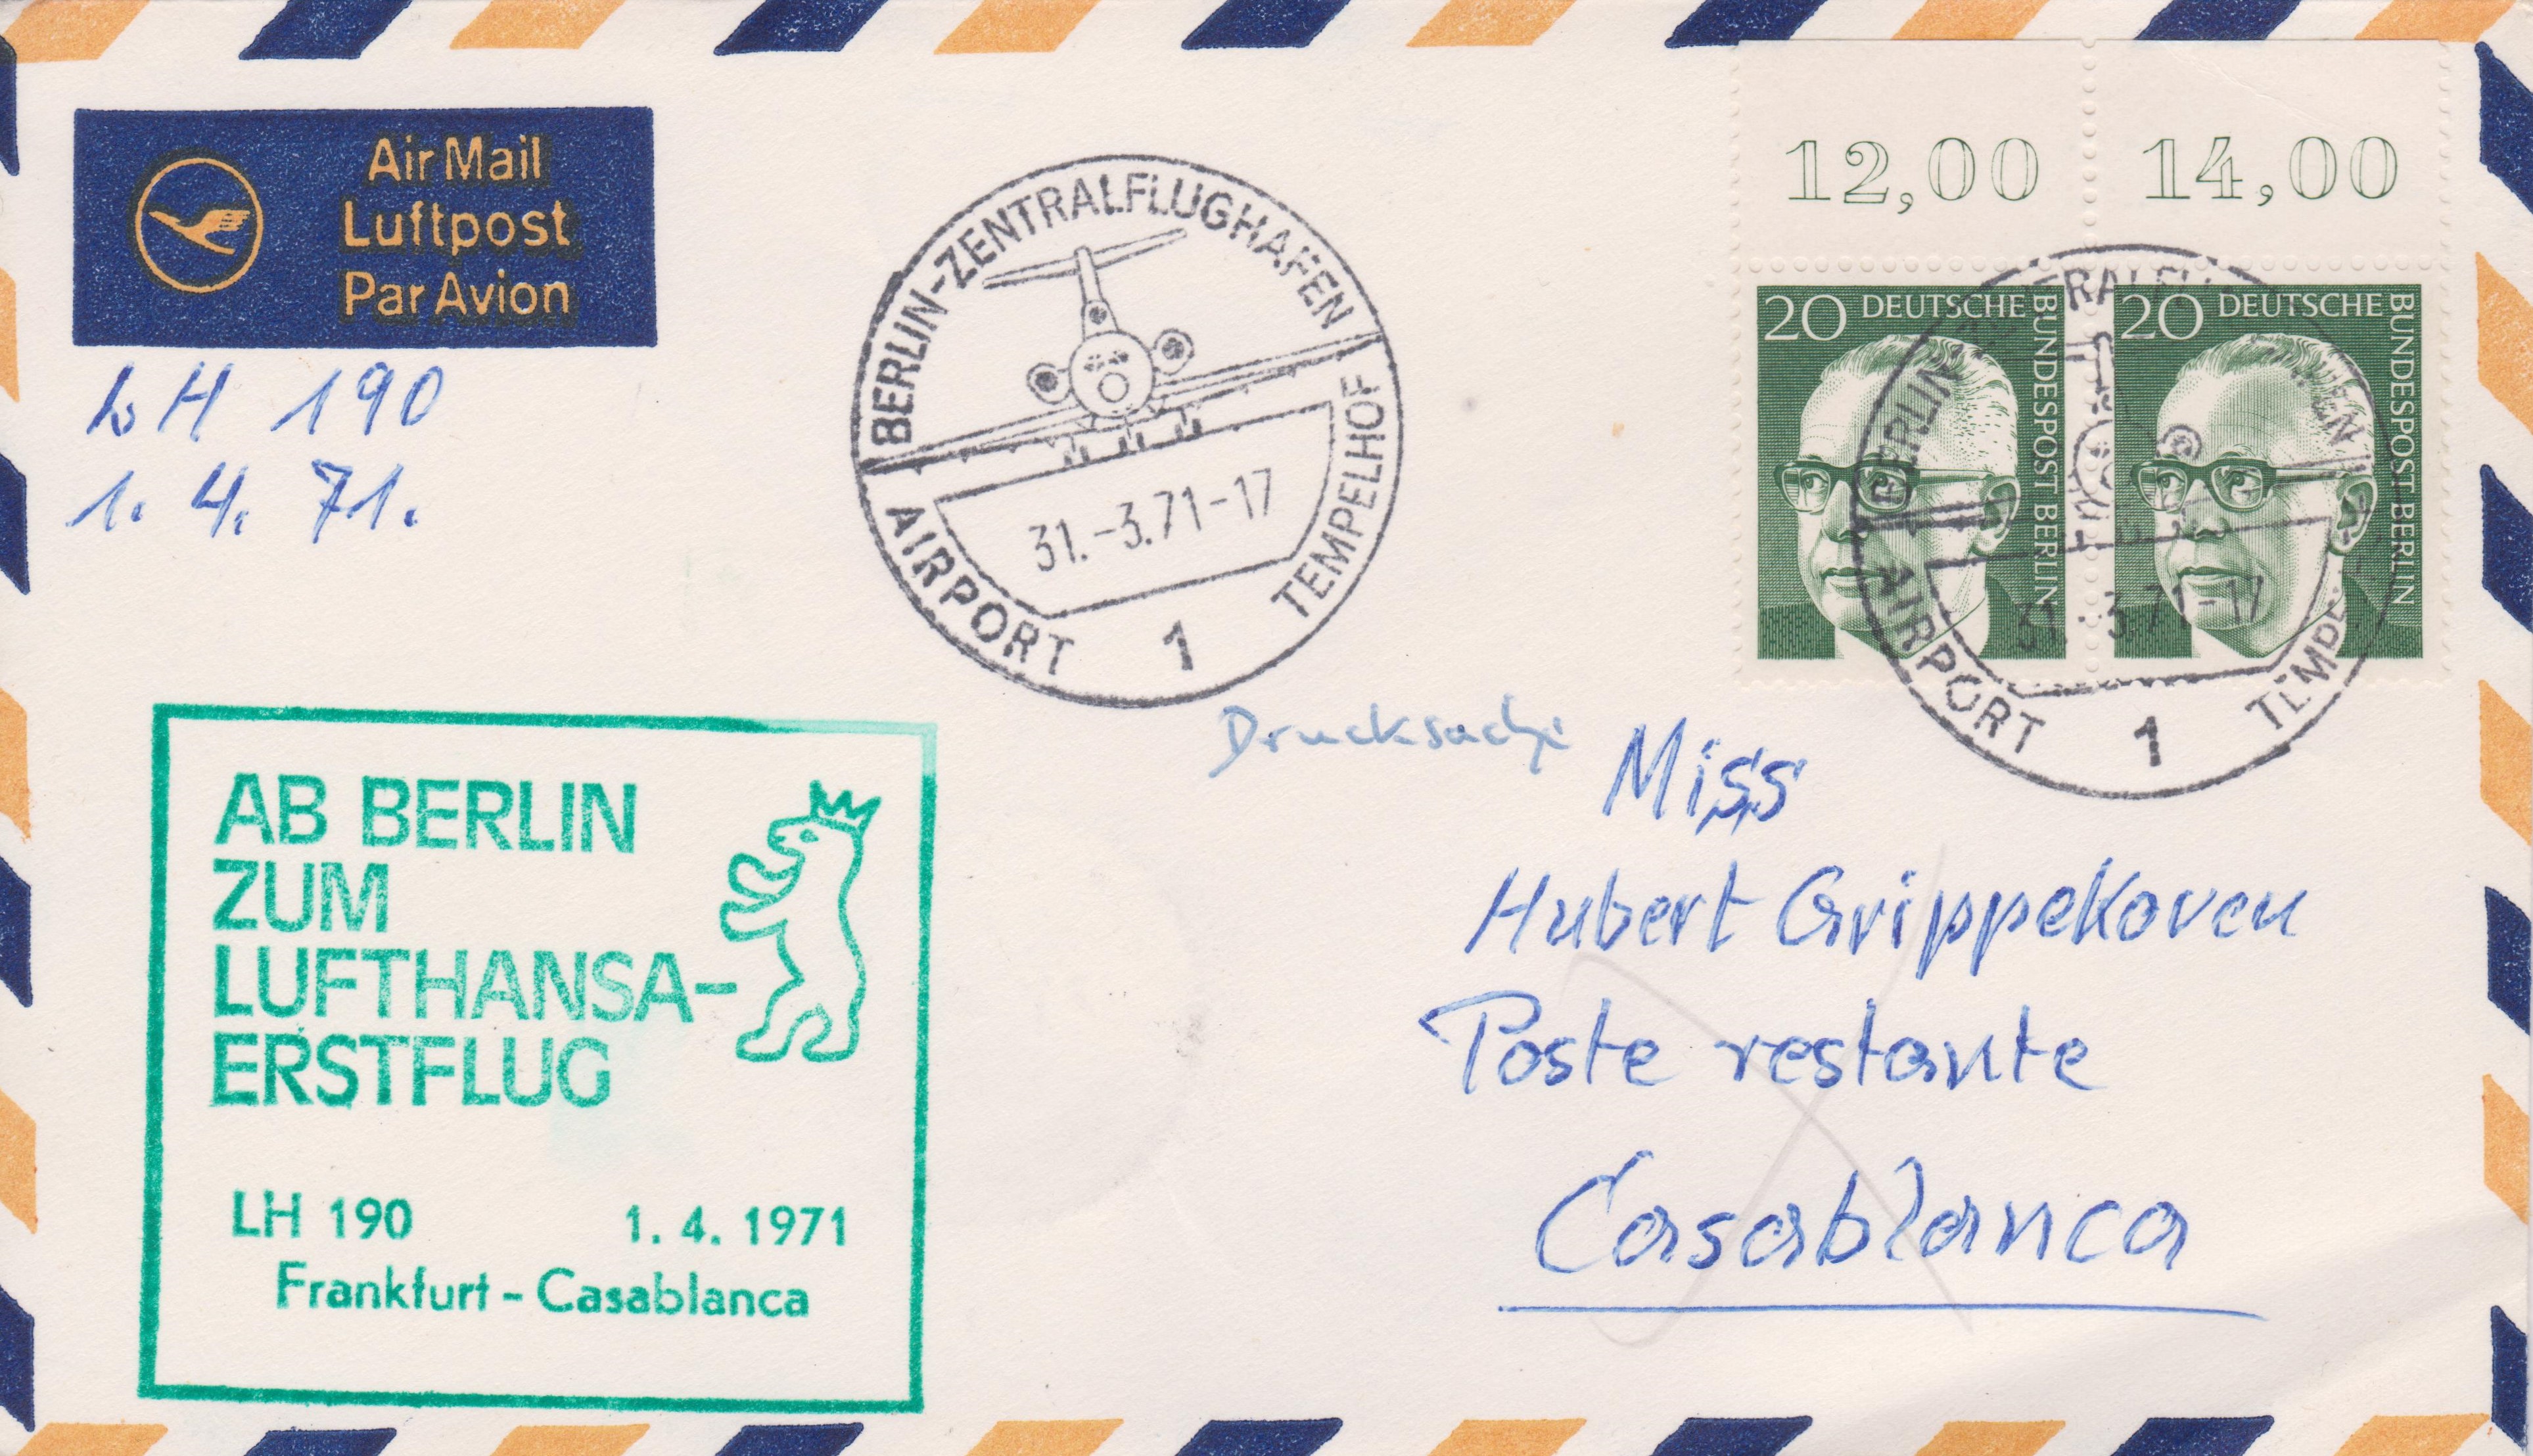 Air Mail
Luftpost
Par Avion
LH 190
1. 4. 71.
BERLIN-ZENTRALFLUGHAFEN
31.-3.71-17
AIRPORT 1 TEMPELHOF
12,00 14,00
20 DEUTSCHE BUNDESPOST BERLIN
20 DEUTSCHE BUNDESPOST BERLIN
31.-3.71-17
AIRPORT 1
Drucksache
Miss
Hubert Grippekoven
Poste restante
Casablanca
AB BERLIN
ZUM
LUFTHANSA-
ERSTFLUG
LH 190 1. 4. 1971
Frankfurt - Casablanca